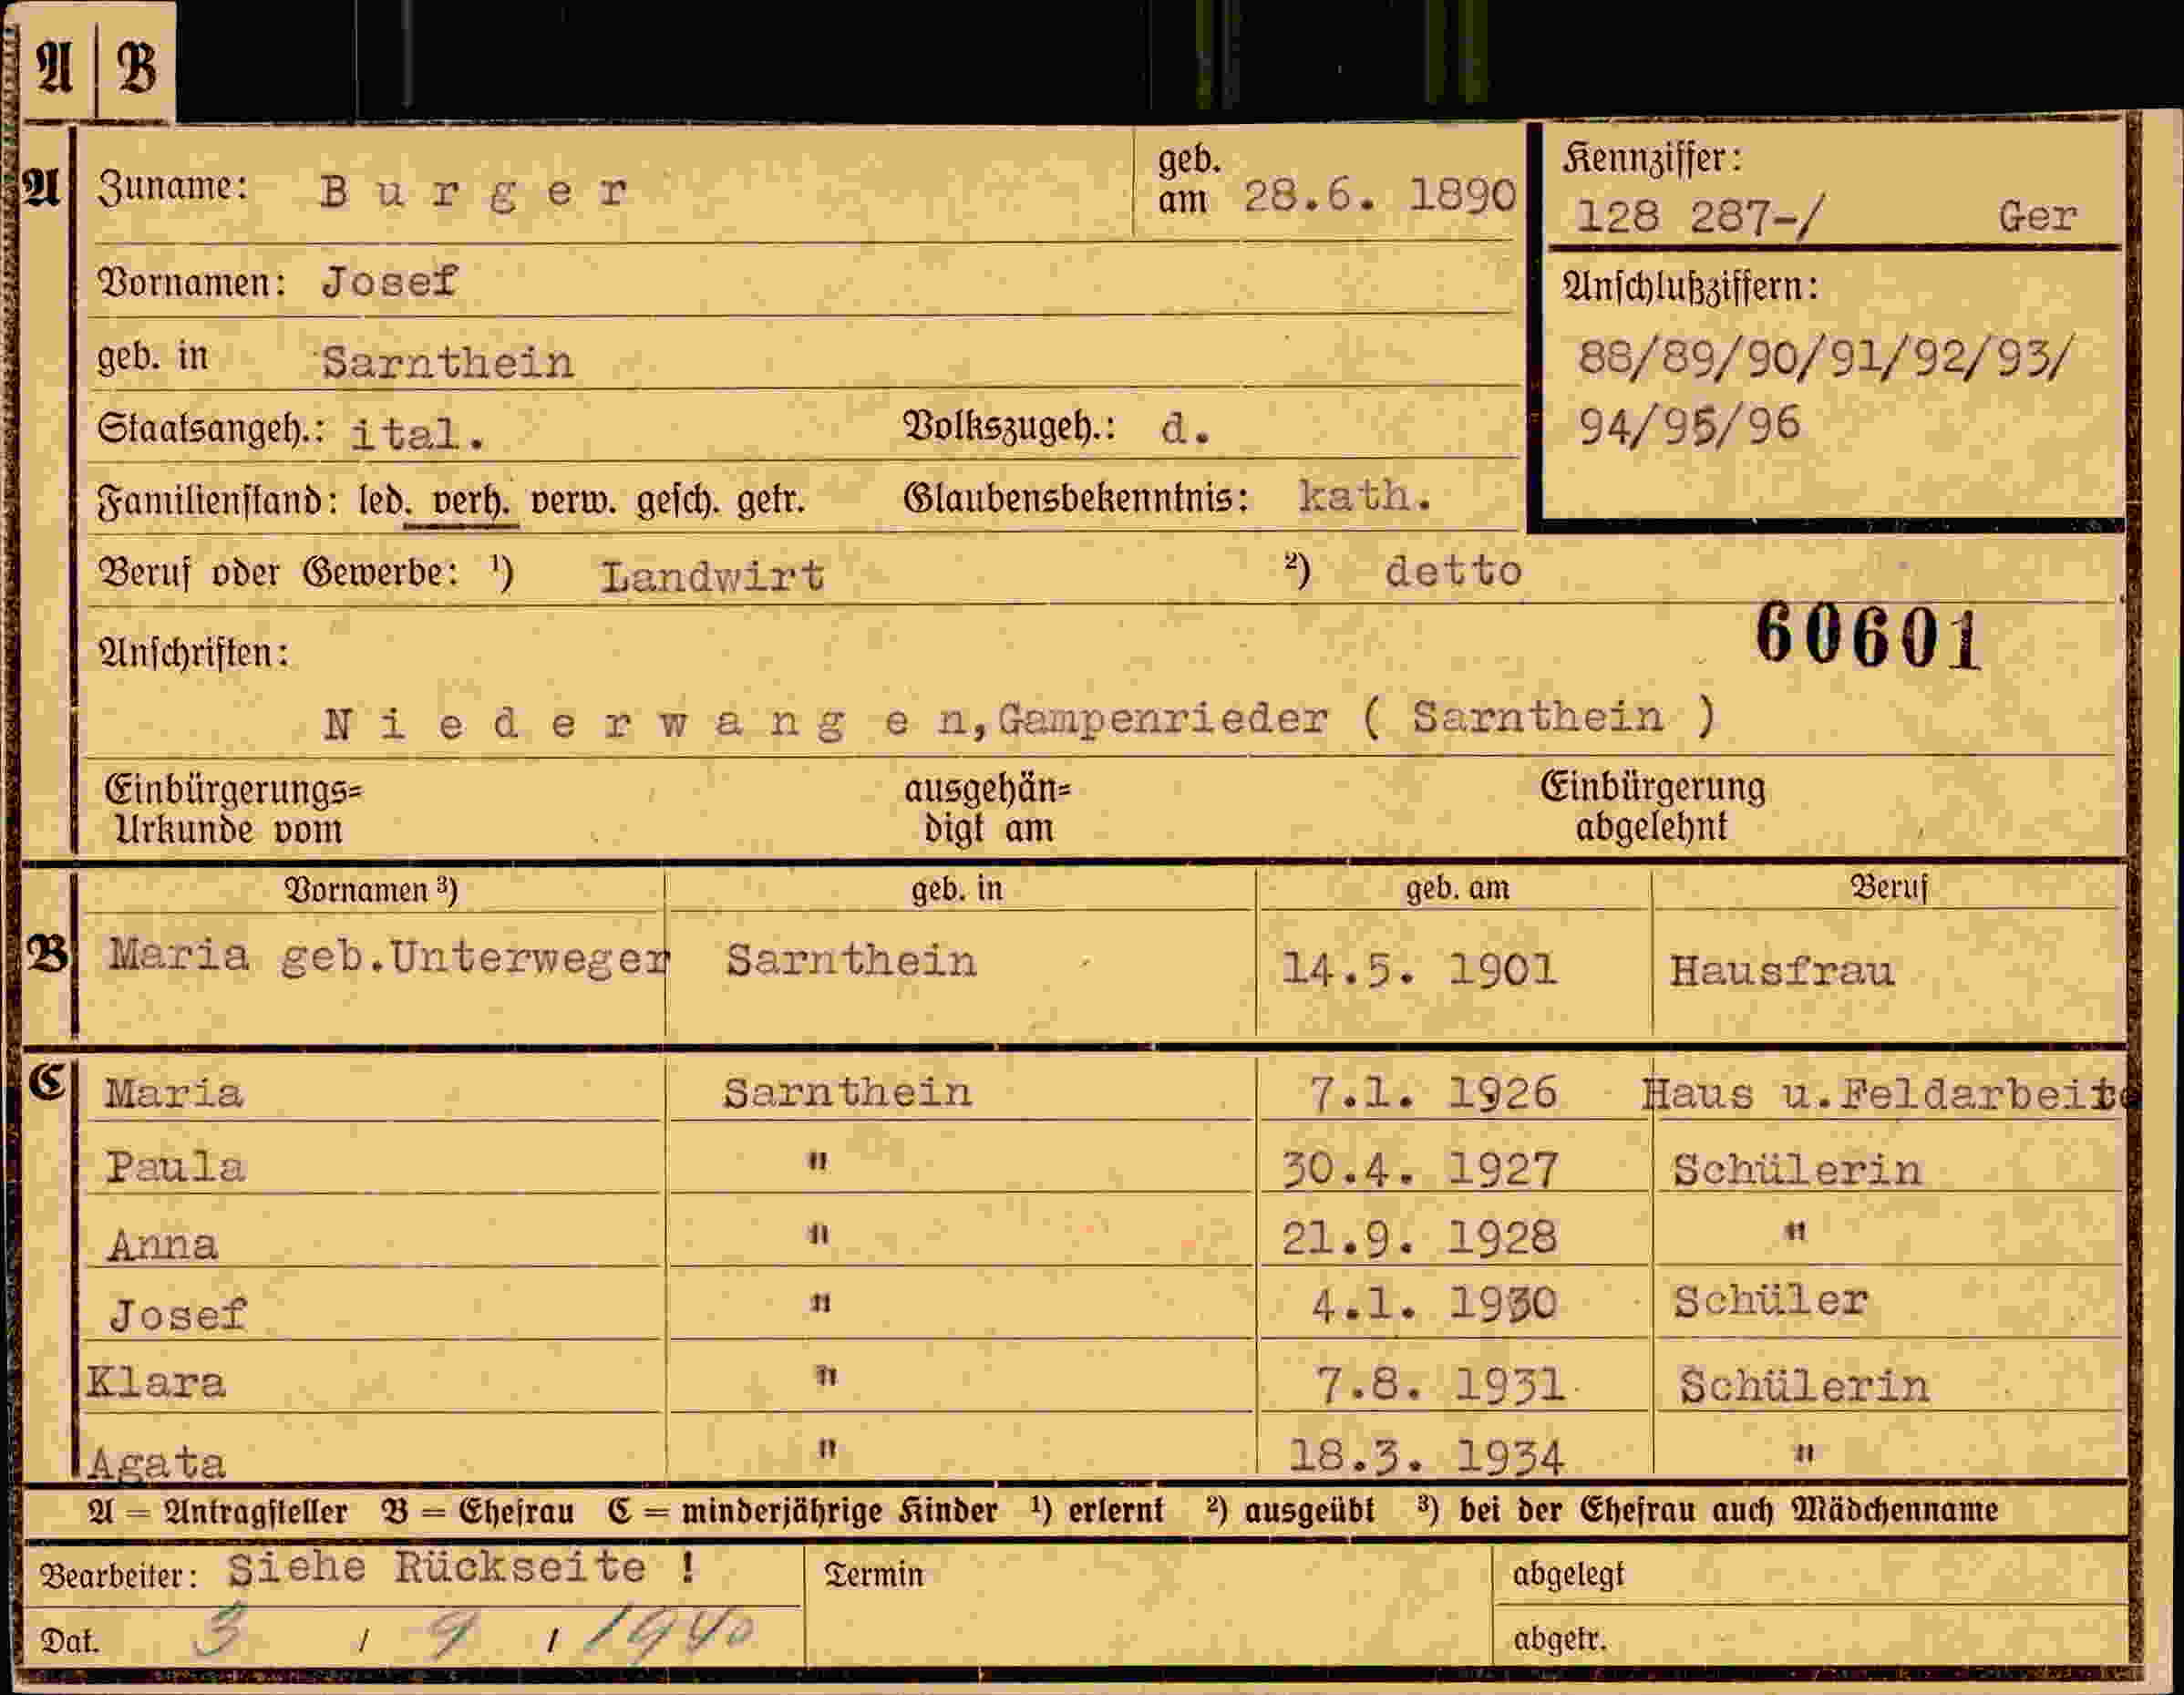 A B
A Zuname: Burger geb. am 28.6. 1890
Kennziffer:
128 287-/ Ger
Vornamen: Josef
Anschlußziffern:
geb. in Sarnthein
88/89/90/91/92/93/
Staatsangeh.: ital. Volkszugeh.: d.
94/95/96
Familienstand: led. verh. verw. gesch. getr. Glaubensbekenntnis: kath.
Beruf oder Gewerbe: ¹) Landwirt ²) detto
60601
Anschriften:
Niederwangen, Gampenrieder ( Sarnthein )
Einbürgerungs= ausgehän= Einbürgerung
Urkunde vom digt am abgelehnt
Vornamen ³) geb. in geb. am Beruf
B Maria geb.Unterweger Sarnthein 14.5. 1901 Hausfrau
C Maria Sarnthein 7.1. 1926 Haus u.Feldarbeite
Paula " 30.4. 1927 Schülerin
Anna " 21.9. 1928 "
Josef " 4.1. 1930 Schüler
Klara " 7.8. 1931 Schülerin
Agata " 18.3. 1934 "
A = Antragsteller B = Ehefrau C = minderjährige Kinder ¹) erlernt ²) ausgeübt ³) bei der Ehefrau auch Mädchenname
Bearbeiter: Siehe Rückseite ! Termin abgelegt
Dat. 3 / 9 / 1940 abgetr.